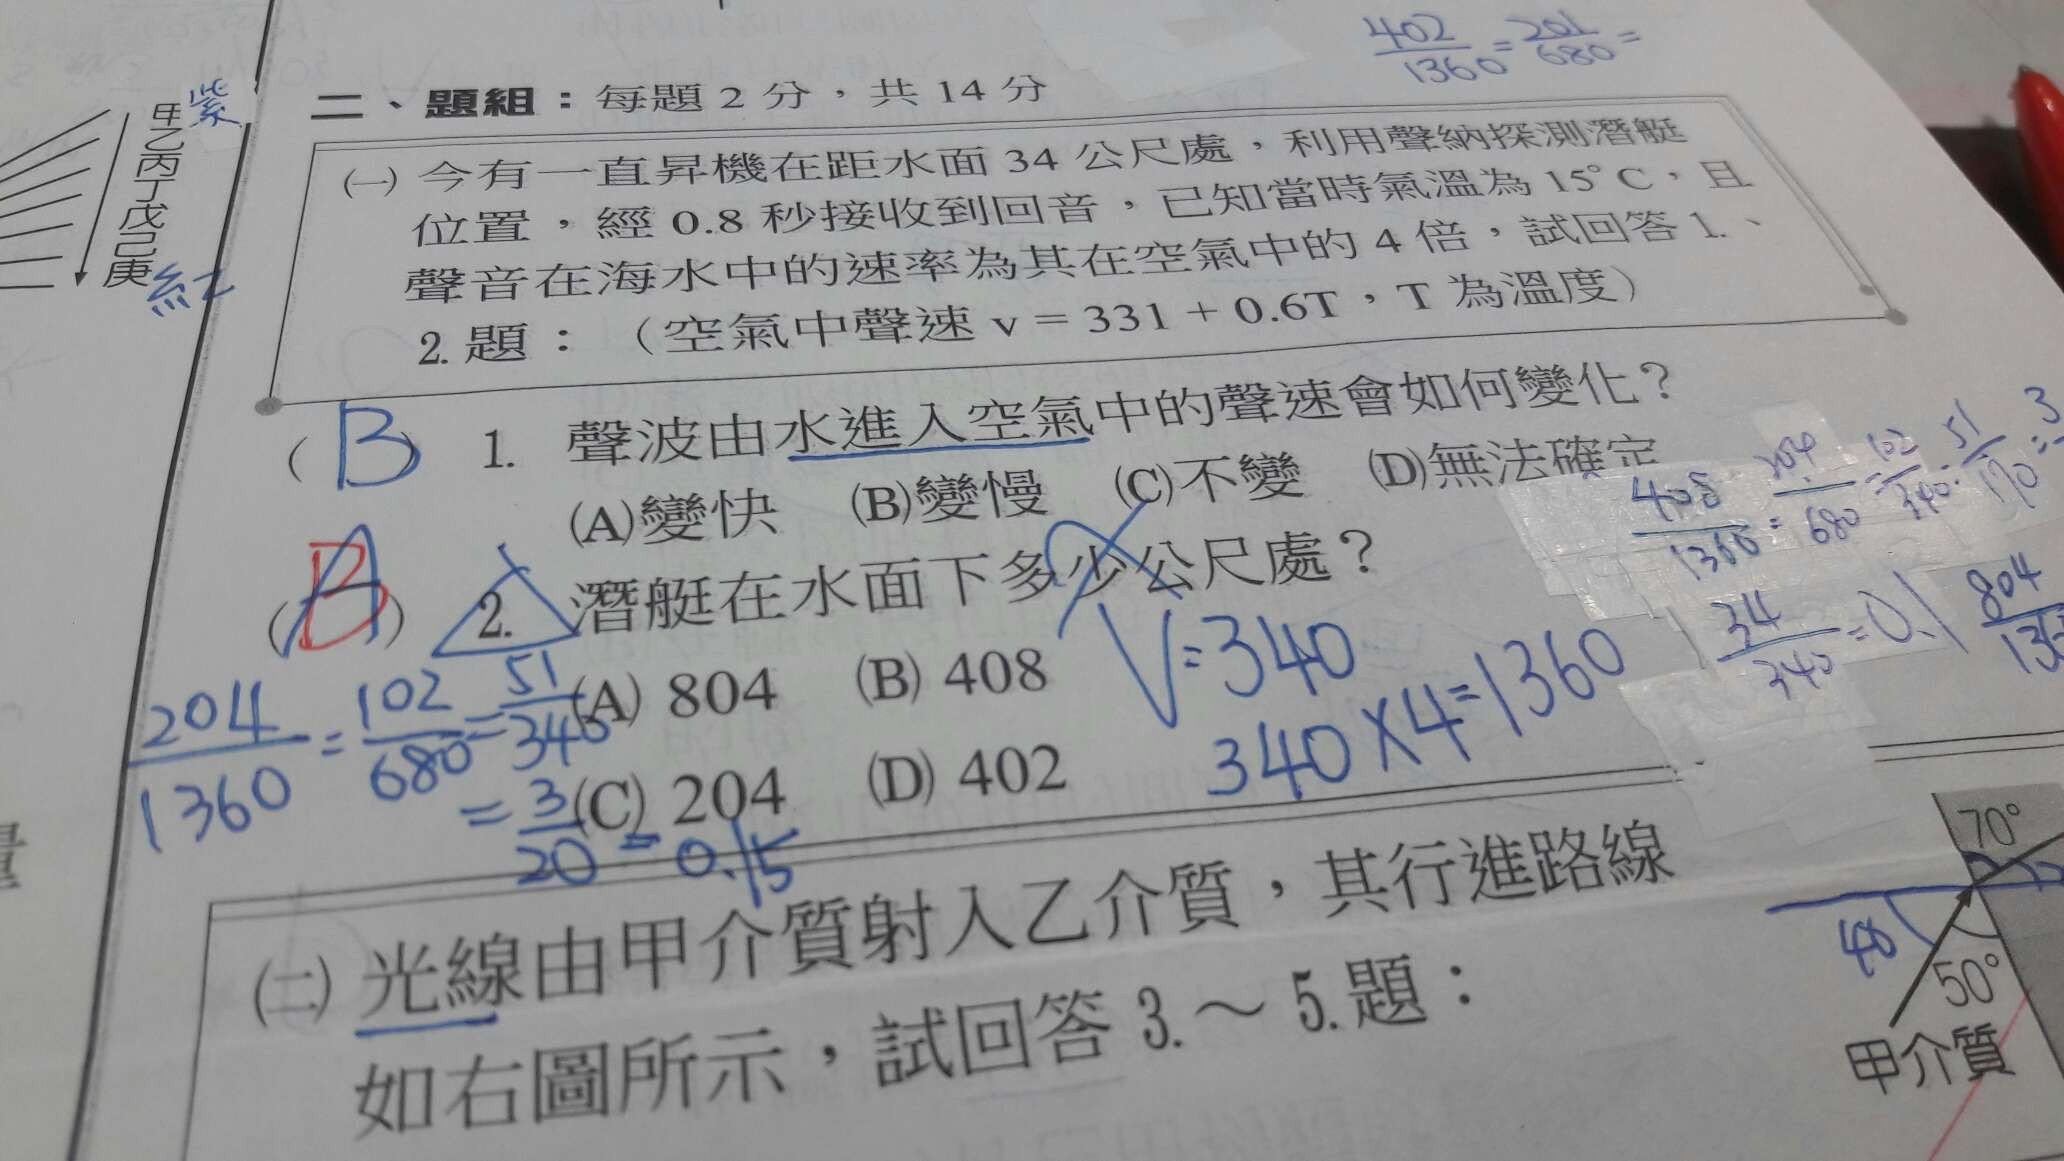 402/1360 = 201/680 =
紫
甲乙丙丁戊己庚
紅
二、題組：每題 2 分，共 14 分
㈠ 今有一直昇機在距水面 34 公尺處，利用聲納探測潛艇
位置，經 0.8 秒接收到回音，已知當時氣溫為 15°C，且
聲音在海水中的速率為其在空氣中的 4 倍，試回答 1.、
2. 題：（空氣中聲速 v = 331 + 0.6T，T 為溫度）
( B ) 1. 聲波由水進入空氣中的聲速會如何變化？
(A)變快 (B)變慢 (C)不變 (D)無法確定
408/1360 = 204/680 = 102/340 = 51/170 = 3
( A B ) 2. 潛艇在水面下多少公尺處？
34/340 = 0.1
804
V=340
(A) 804 (B) 408
340×4=1360
204/1360 = 102/680 = 51/340
(C) 204 (D) 402
= 3/20 = 0.15
㈡ 光線由甲介質射入乙介質，其行進路線
如右圖所示，試回答 3.～ 5. 題：
70°
40
50°
甲介質